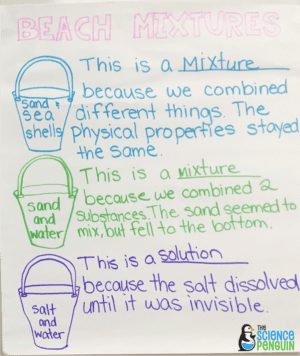 BEACH MIXTURES
This is a Mixture
because we combined
different things. The
physical properties stayed
the same.
Sand &
Sea
shells
This is a mixture
because we combined 2
substances. The sand seemed to
mix, but fell to the bottom.
sand
and
water
This is a solution
because the salt dissolved
until it was invisible.
salt
and
water
THE
SCIENCE
PENGUIN